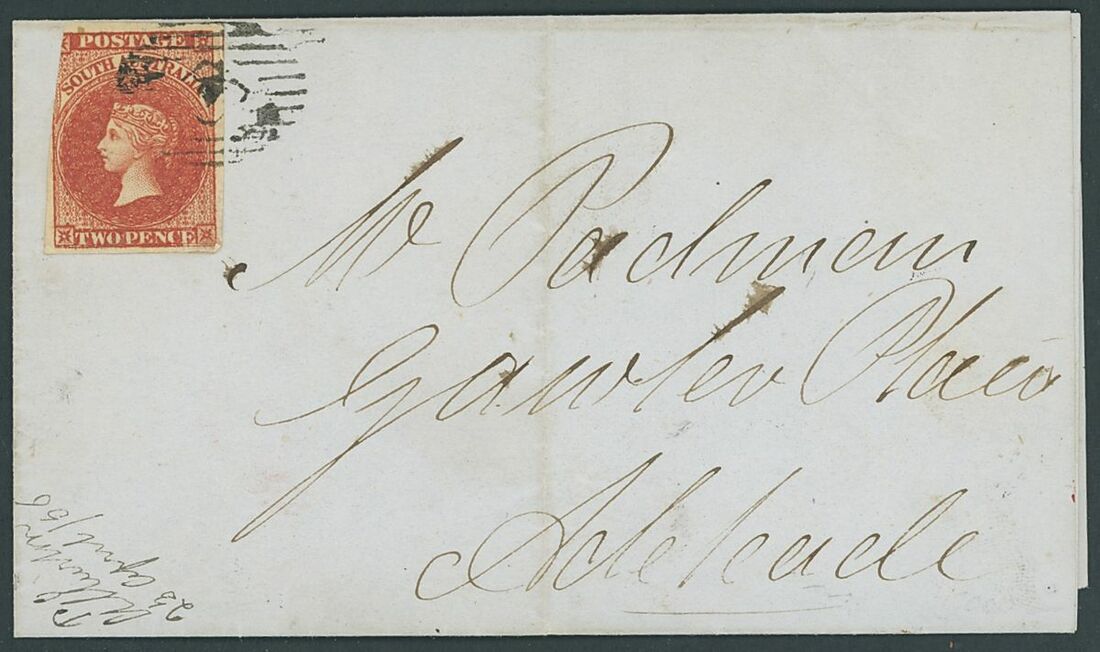 POSTAGE
SOUTH AUSTRALIA
TWO PENCE
Mr Padman
Gawler Place
Adelaide
23
April /56